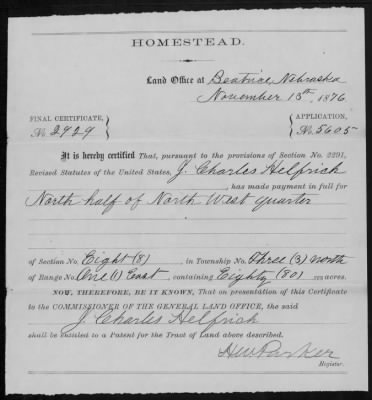 HOMESTEAD.
Land Office at Beatrice, Nebraska
November 13th, 1876.
FINAL CERTIFICATE, APPLICATION,
No. 2929 No. 5605
It is hereby certified That, pursuant to the provisions of Section No. 2291,
Revised Statutes of the United States, J. Charles Helfrich
, has made payment in full for
North half of North West quarter
of Section No. Eight (8) , in Township No. Three (3) North
of Range No. One (1) East , containing Eighty (80) acres.
NOW, THEREFORE, BE IT KNOWN, That on presentation of this Certificate
to the COMMISSIONER OF THE GENERAL LAND OFFICE, the said
J. Charles Helfrich
shall be entitled to a Patent for the Tract of Land above described.
HW Parker
Register.